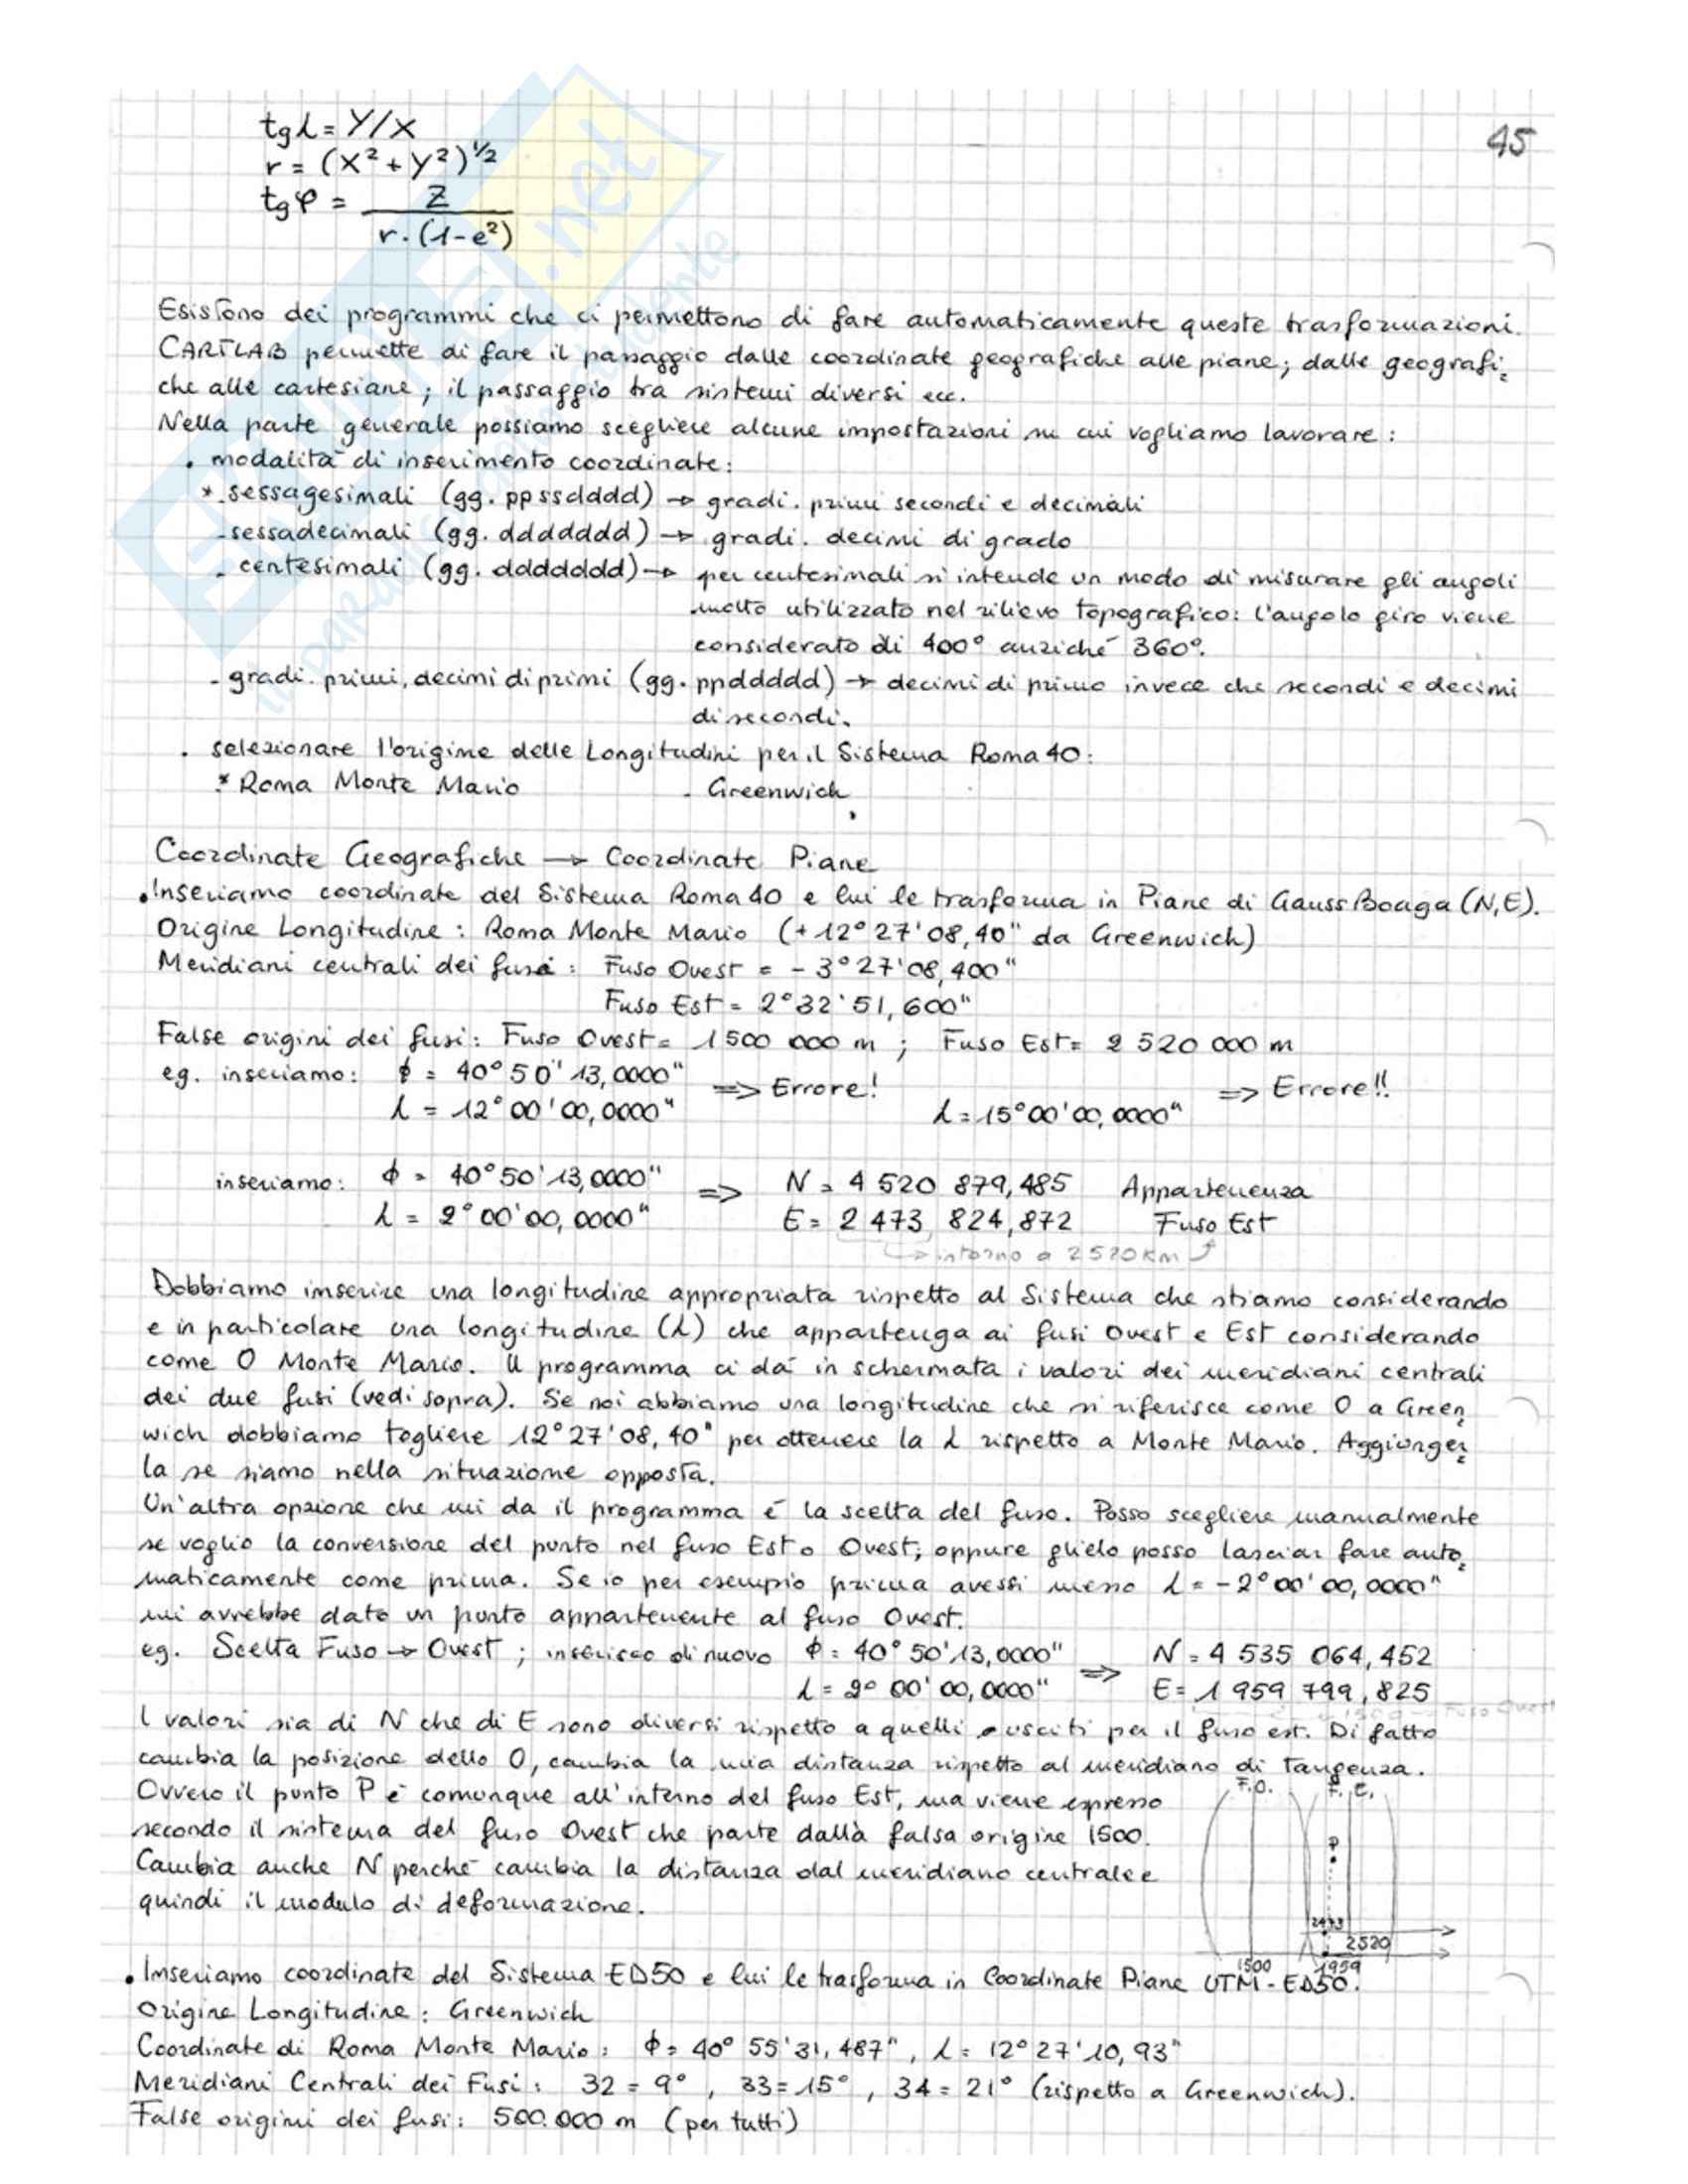 45
tgλ = Y/X
r = (X² + Y²)^½
tgφ = Z / r·(1-e²)
Esistono dei programmi che ci permettono di fare automaticamente queste trasformazioni.
CARTLAB permette di fare il passaggio dalle coordinate geografiche alle piane; dalle geografi=
che alle cartesiane; il passaggio tra sistemi diversi ecc.
Nella parte generale possiamo scegliere alcune impostazioni su cui vogliamo lavorare:
• modalità di inserimento coordinate:
* sessagesimali (gg. ppssdddd) → gradi. primi secondi e decimali
- sessadecimali (gg. ddddddd) → gradi. decimi di grado
- centesimali (gg. dddddddd) → per centesimali si intende un modo di misurare gli angoli
molto utilizzato nel rilievo topografico: l'angolo giro viene
considerato di 400° anziché 360°.
- gradi. primi, decimi di primi (gg. ppddddd) → decimi di primo invece che secondi e decimi
di secondi.
• selezionare l'origine delle Longitudini per il Sistema Roma 40:
* Roma Monte Mario - Greenwich
Coordinate Geografiche → Coordinate Piane
• Inseriamo coordinate del Sistema Roma 40 e lui le trasforma in Piane di Gauss Boaga (N,E).
Origine Longitudine: Roma Monte Mario (+12°27'08,40" da Greenwich)
Meridiani centrali dei fusi: Fuso Ovest = -3°27'08,400"
Fuso Est = 2°32'51,600"
False origini dei fusi: Fuso Ovest = 1500 000 m ; Fuso Est = 2 520 000 m
eg. inseriamo: ϕ = 40°50'13,0000" => Errore! => Errore!!
λ = 12°00'00,0000" λ = 15°00'00,0000"
inseriamo: ϕ = 40°50'13,0000" => N = 4 520 879,485 Appartenenza
λ = 2°00'00,0000" E = 2 473 824,872 Fuso Est
↳ intorno a 2520 Km
Dobbiamo inserire una longitudine appropriata rispetto al Sistema che stiamo considerando
e in particolare una longitudine (λ) che appartenga ai fusi Ovest e Est considerando
come 0 Monte Mario. Il programma ci dà in schermata i valori dei meridiani centrali
dei due fusi (vedi sopra). Se noi abbiamo una longitudine che si riferisce come 0 a Green=
wich dobbiamo togliere 12°27'08,40" per ottenere la λ rispetto a Monte Mario. Aggiunger=
la se siamo nella situazione opposta.
Un'altra opzione che mi da il programma é la scelta del fuso. Posso scegliere manualmente
se voglio la conversione del punto nel fuso Est o Ovest; oppure glielo posso lasciar fare auto=
maticamente come prima. Se io per esempio prima avessi messo λ = -2°00'00,0000"
mi avrebbe dato un punto appartenente al fuso Ovest.
eg. Scelta Fuso → Ovest ; inserisco di nuovo ϕ = 40°50'13,0000" => N = 4 535 064,452
λ = 2° 00' 00,0000" E = 1 959 799,825
1500 → Fuso Ovest
I valori sia di N che di E sono diversi rispetto a quelli usciti per il fuso est. Di fatto
cambia la posizione dello 0, cambia la mia distanza rispetto al meridiano di tangenza.
Ovvero il punto P è comunque all'interno del fuso Est, ma viene espresso
secondo il sistema del fuso Ovest che parte dalla falsa origine 1500.
Cambia anche N perché cambia la distanza dal meridiano centrale e
quindi il modulo di deformazione.
F.O. F. E.
P
2473
2520
1500 1959
• Inseriamo coordinate del Sistema ED50 e lui le trasforma in Coordinate Piane UTM-ED50.
Origine Longitudine: Greenwich
Coordinate di Roma Monte Mario: ϕ = 40° 55'31,487" , λ = 12°27'10,93"
Meridiani Centrali dei Fusi: 32 = 9° , 33 = 15° , 34 = 21° (rispetto a Greenwich).
False origini dei fusi: 500.000 m (per tutti)